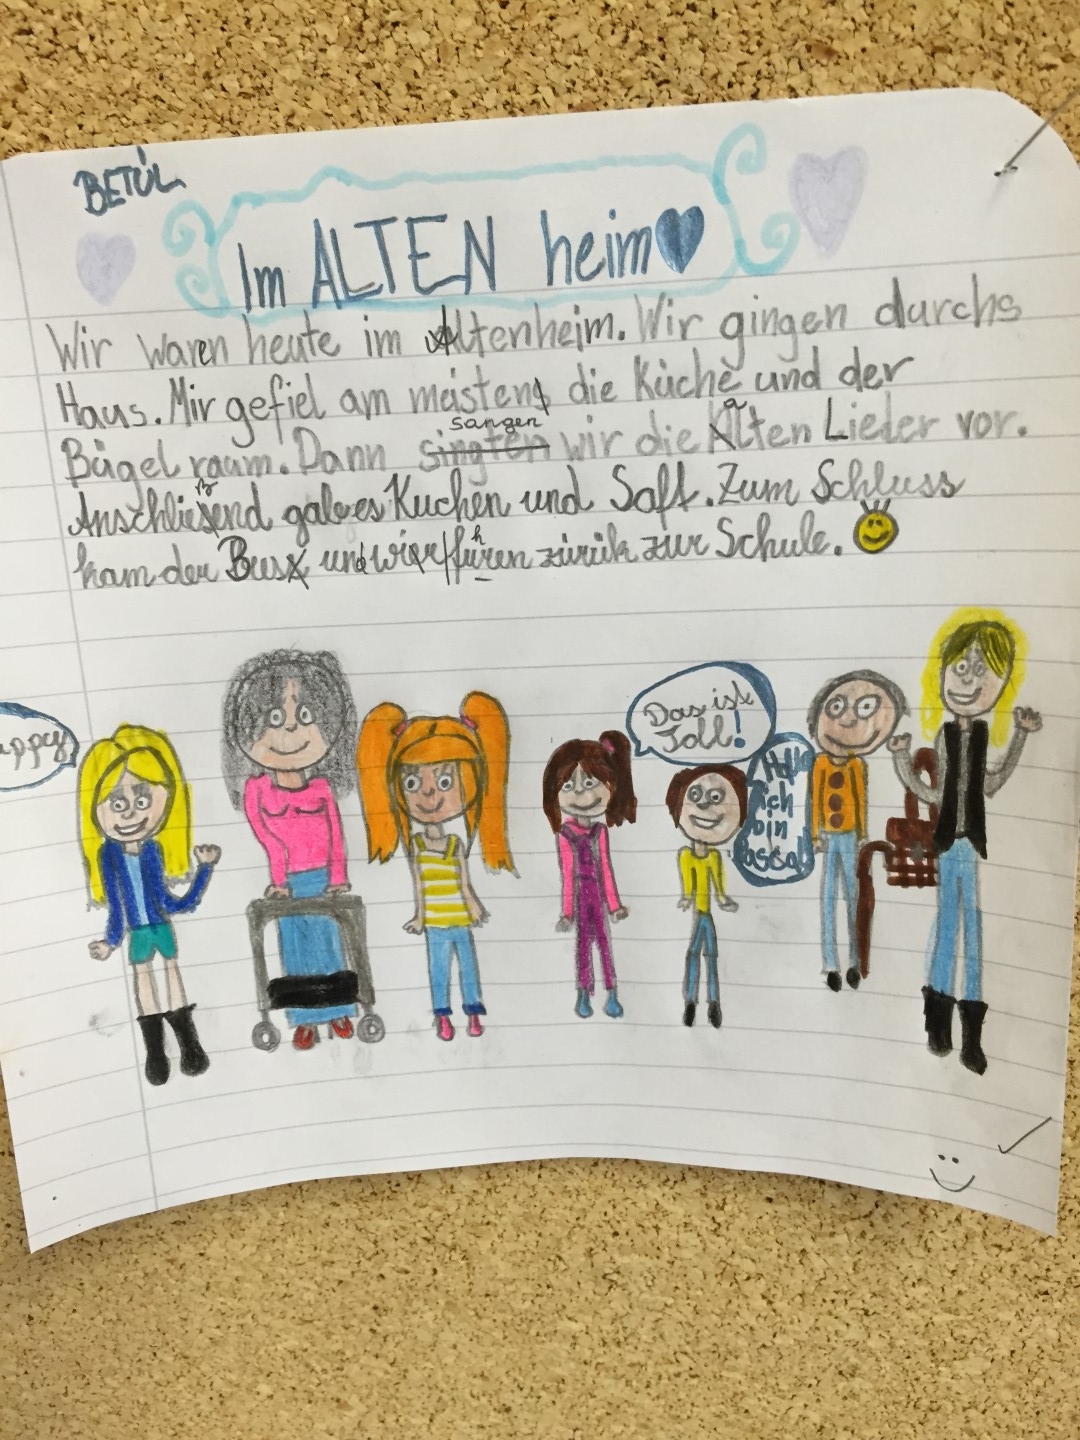 BETÜL
Im ALTEN heim
Wir waren heute im Altenheim. Wir gingen durchs
Haus. Mir gefiel am meisten die Küche und der
Bügel raum. Dann singten wir die Alten Lieder vor.
sangen
a
Anschließend gab es Kuchen und Saft. Zum Schluss
ß
kam der Bus und wir führen zürük zur Schule.
h
appy
Das ist
Toll!
Hallo
ich
bin
Pascal